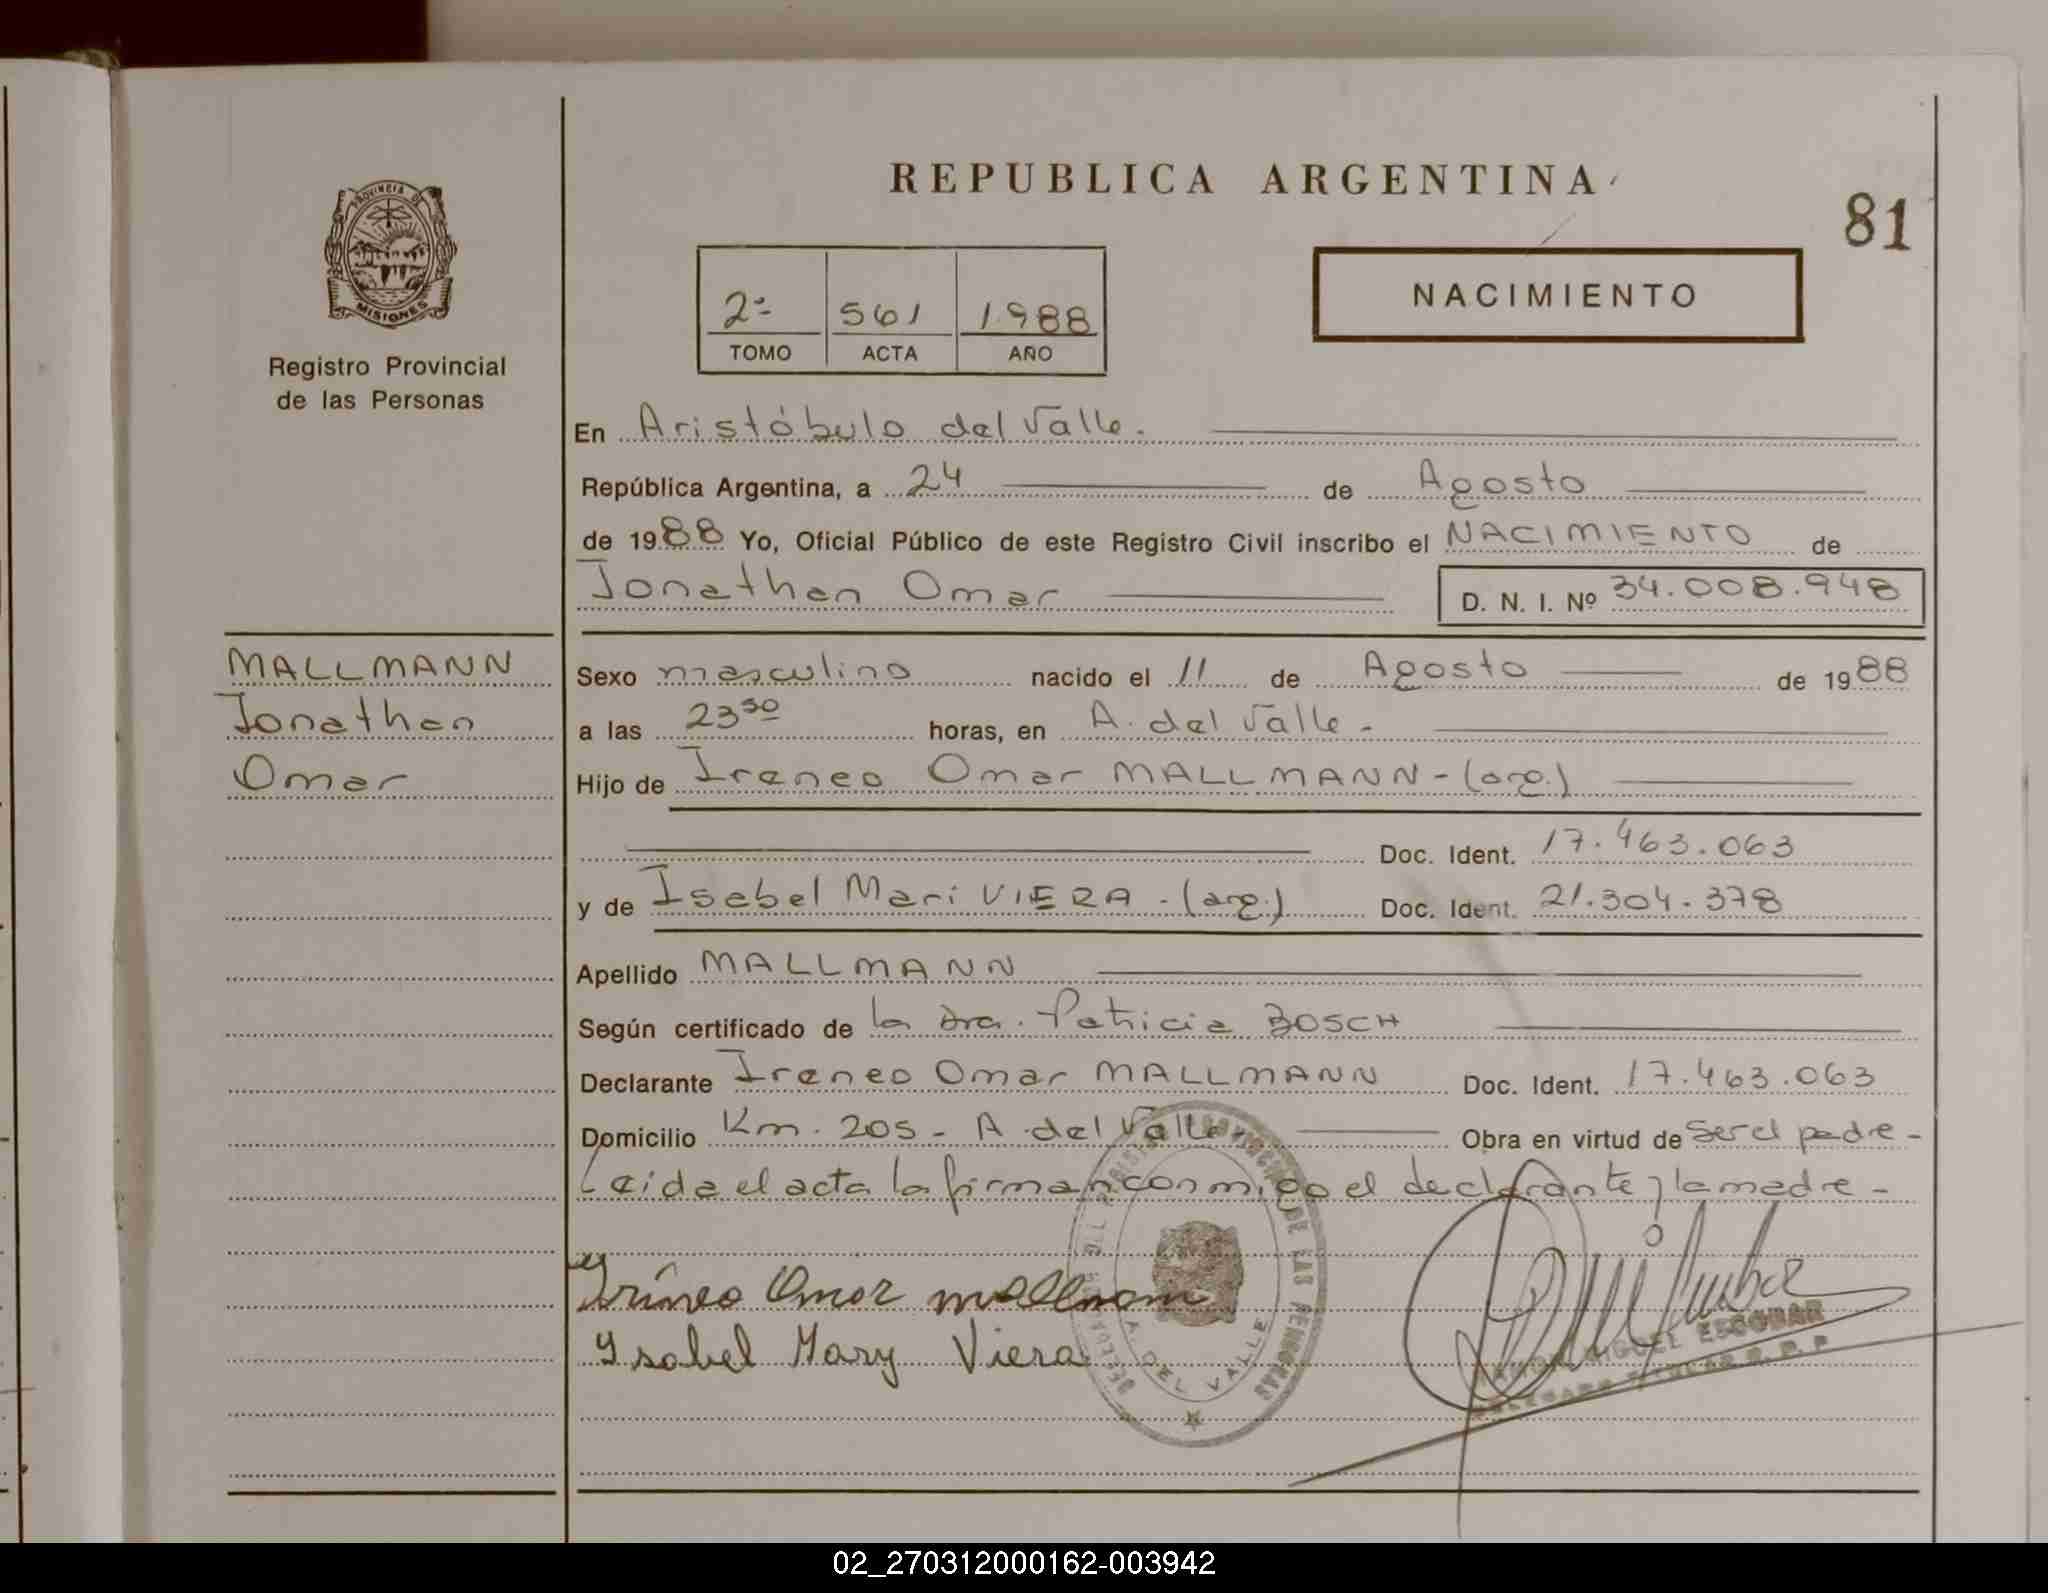 REPUBLICA ARGENTINA
81
PROVINCIA DE
MISIONES
Registro Provincial
de las Personas
2ª 561 1988
TOMO ACTA AÑO
NACIMIENTO
En Aristóbulo del Valle.
República Argentina, a 24 de Agosto
de 1988 Yo, Oficial Público de este Registro Civil inscribo el NACIMIENTO de
Jonathan Omar D. N. I. Nº 34.008.948
MALLMANN
Jonathan
Omar
Sexo masculino nacido el 11 de Agosto de 1988
a las 23 50 horas, en A. del Valle.
Hijo de Ireneo Omar MALLMANN - (arg.)
Doc. Ident. 17.463.063
y de Isabel Mari VIERA - (arg.) Doc. Ident. 21.304.378
Apellido MALLMANN
Según certificado de la Dra. Patricia BOSCH
Declarante Ireneo Omar MALLMANN Doc. Ident. 17.463.063
Domicilio Km. 205 - A. del Valle. Obra en virtud de ser el padre -
Leida el acta la firman conmigo el declarante y la madre -
Irineo Omar mallmann
Ysabel Mary Viera
DE LAS PERSONAS
A. DEL VALLE
MIGUEL ESCOBAR
02_270312000162-003942